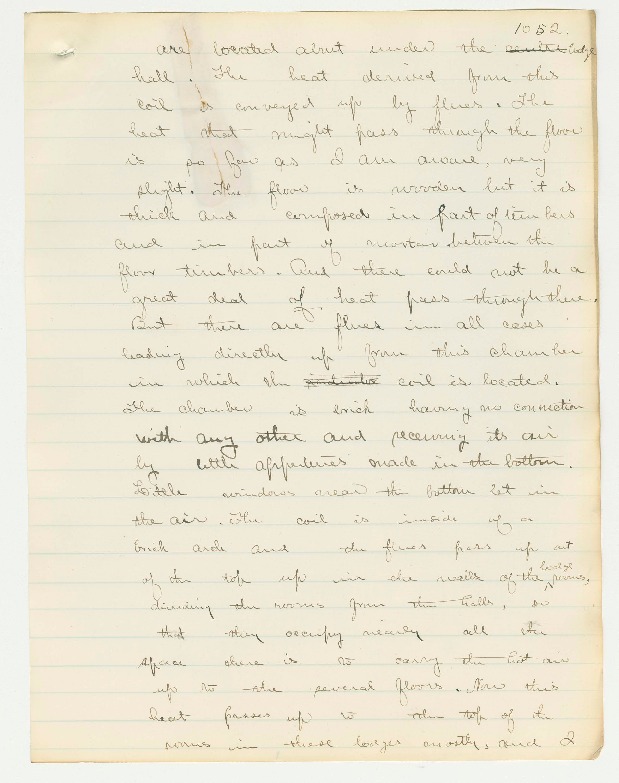 1052.
are located about under the centre lodge
hall. The heat derived from this
coil is conveyed up by flues. The
heat that might pass through the floor
is so far as I am aware, very
slight. The floor is wooden but it is
thick and composed in part of timbers
and in part of mortar between the
floor timbers. And there could not be a
great deal of heat pass through there.
But there are flues in all cases
leading directly up from this chamber
in which the coil is located.
The chamber is brick having no connection
with any other and receiving its air
by little appertures made in the bottom.
Little windows near the bottom let in
the air. The coil is inside of a
brick arch and the flues pass up out
of the top up in the walls of the lodge rooms,
dividing the rooms from the halls, so
that they occupy nearly all the
space there is to carry the hot air
up to the several floors. Now this
heat passes up to the top of the
rooms in these lodges mostly, and I